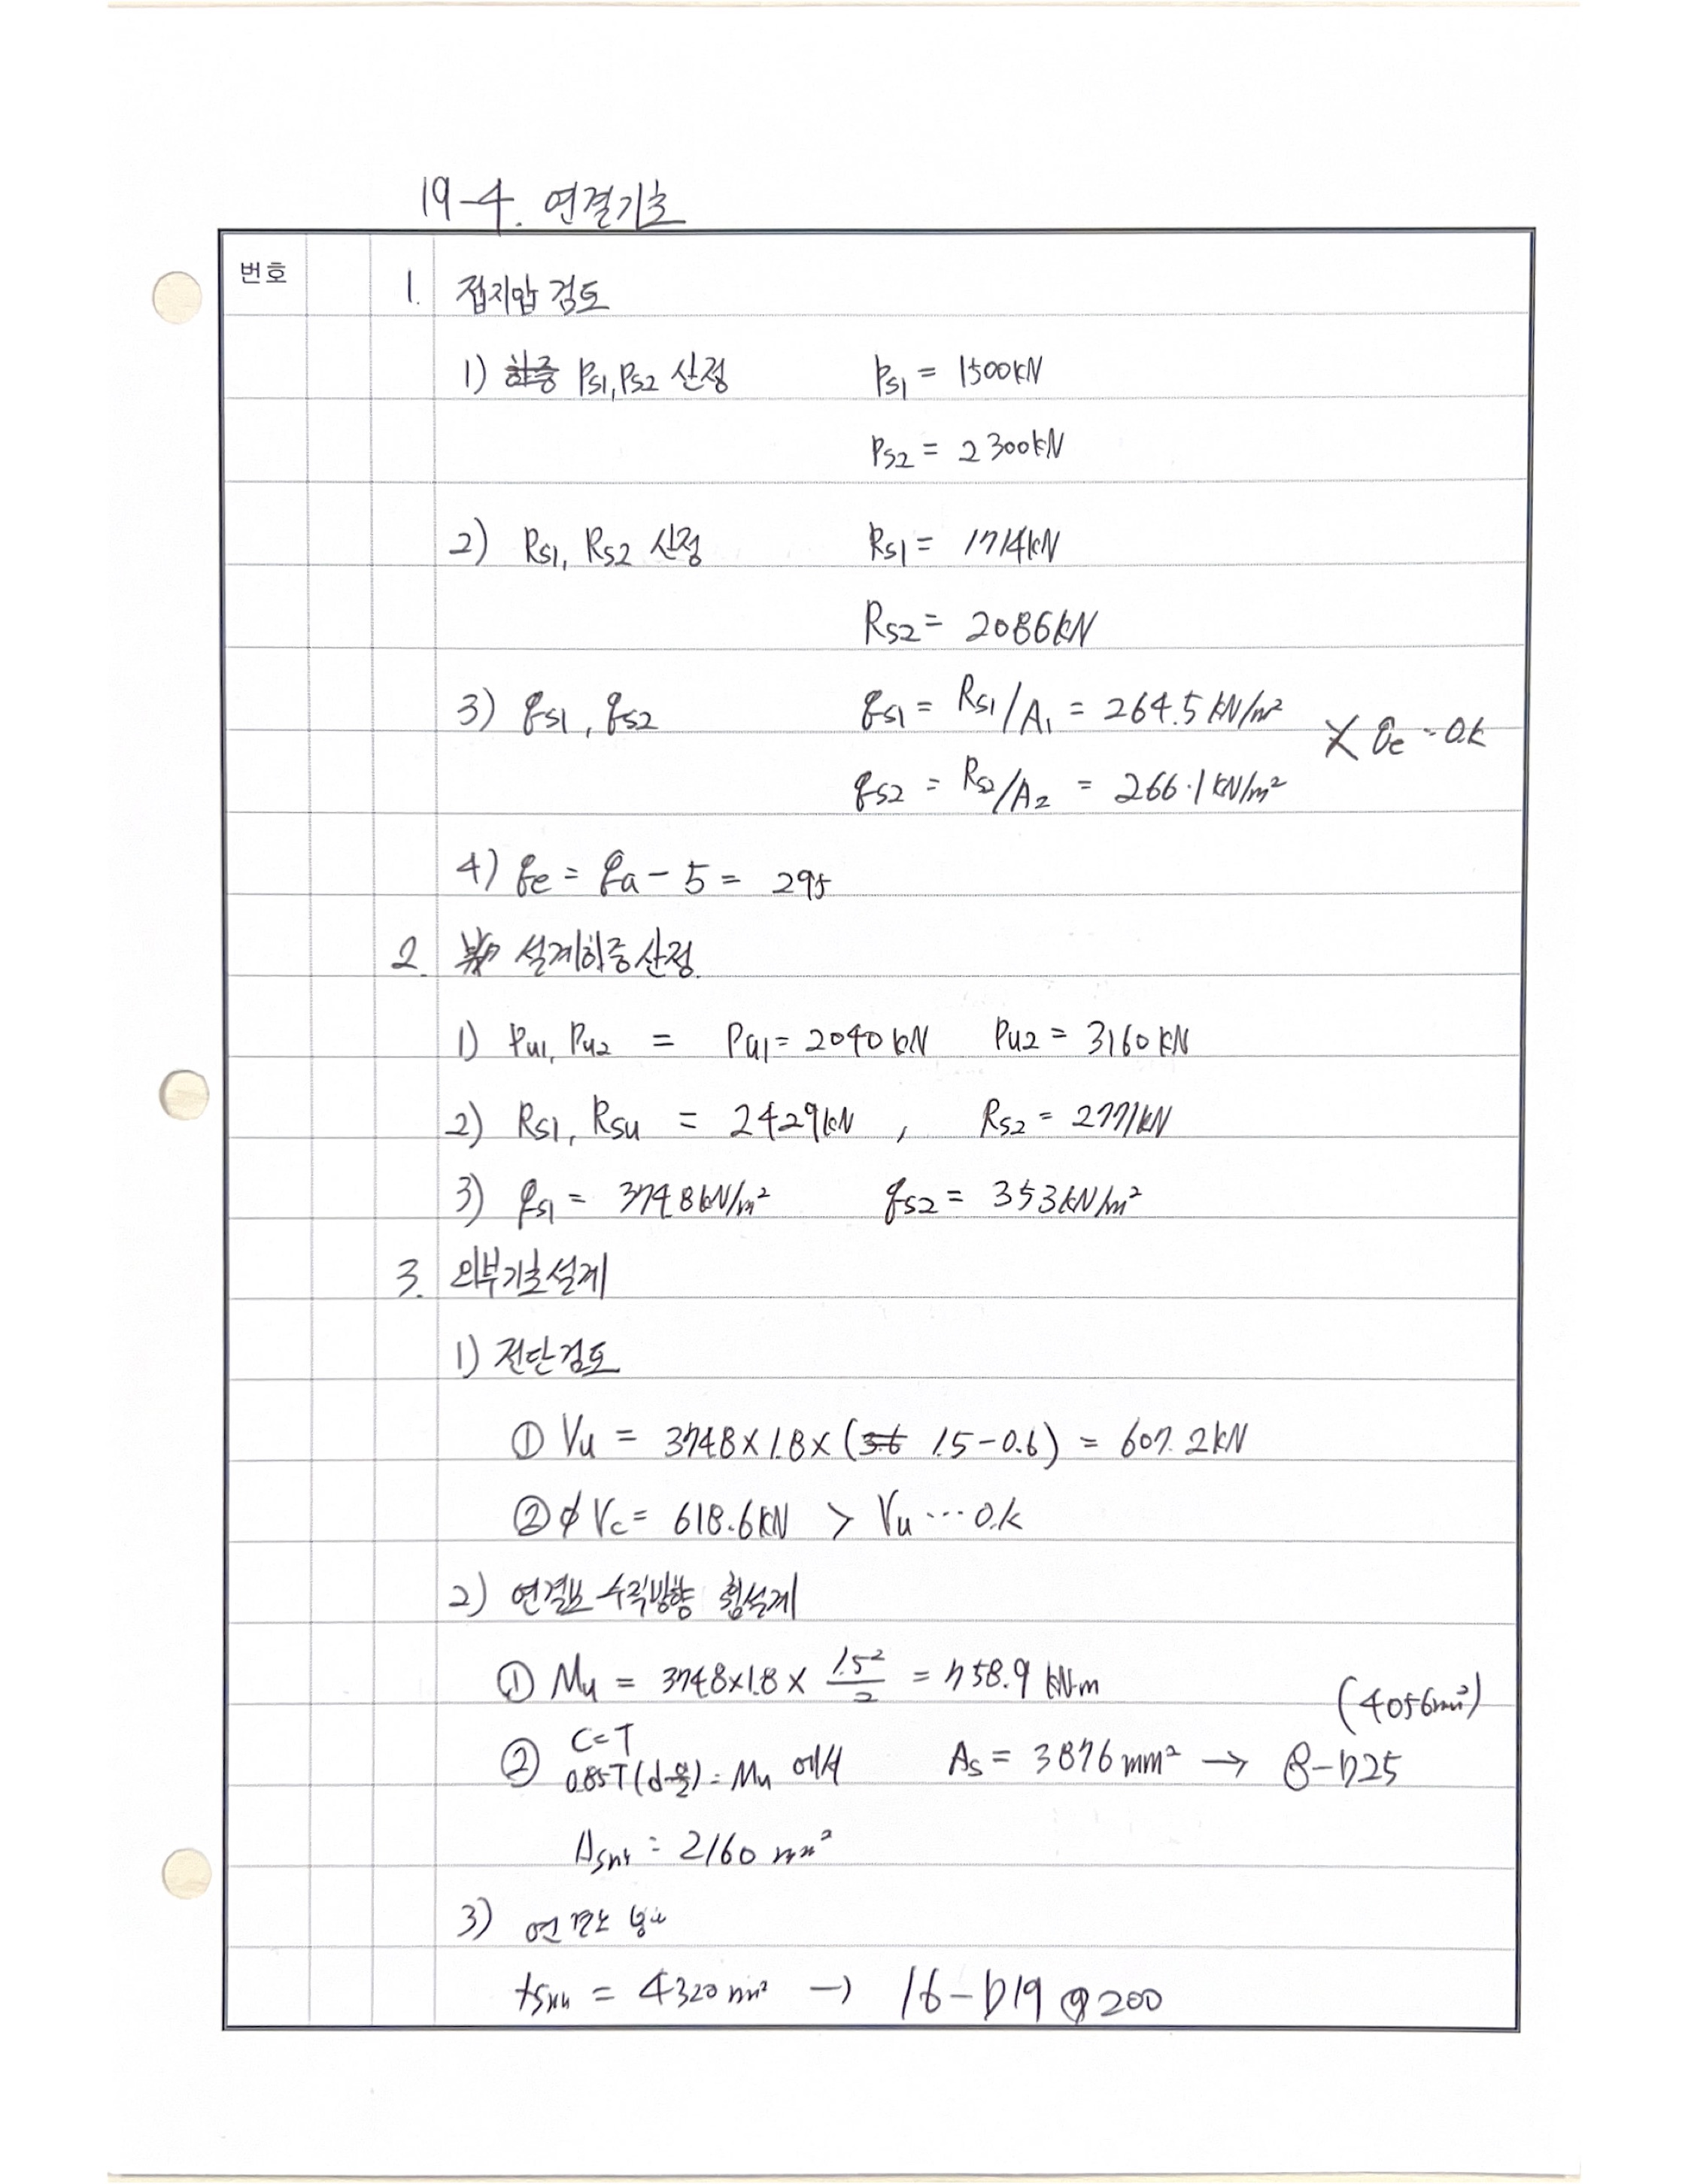 19-4. 연결기초
번호
1. 접지압 검토
1) 하중 Ps1, Ps2 산정 Ps1 = 1500kN
Ps2 = 2300kN
2) Rs1, Rs2 산정 Rs1 = 1714kN
Rs2 = 2086kN
3) qs1, qs2 qs1 = Rs1/A1 = 264.5 kN/m²
qe - O.K
qs2 = Rs2/A2 = 266.1 kN/m²
4) qe = qa - 5 = 295
2. 설계하중산정
1) Pu1, Pu2 = Pu1 = 2040 kN Pu2 = 3160 kN
2) Rs1, Rsu = 2429kN , Rs2 = 2771kN
3) qs1 = 374.8 kN/m² qs2 = 353 kN/m²
3. 외부기초설계
1) 전단검토
① Vu = 374.8 × 1.8 × (3.6 1.5-0.6) = 607.2kN
② φVc = 618.6kN > Vu ... O.K
2) 연결보 수직방향 휨설계
① Mu = 374.8×1.8 × 1.5²/2 = 758.9 kN·m
(4056mm²)
② C=T
0.85T(d-) = Mu 에서 As = 3876 mm² → 8-D25
= 2160 mm²
3)
= 4320 mm² → 16-D19 @200